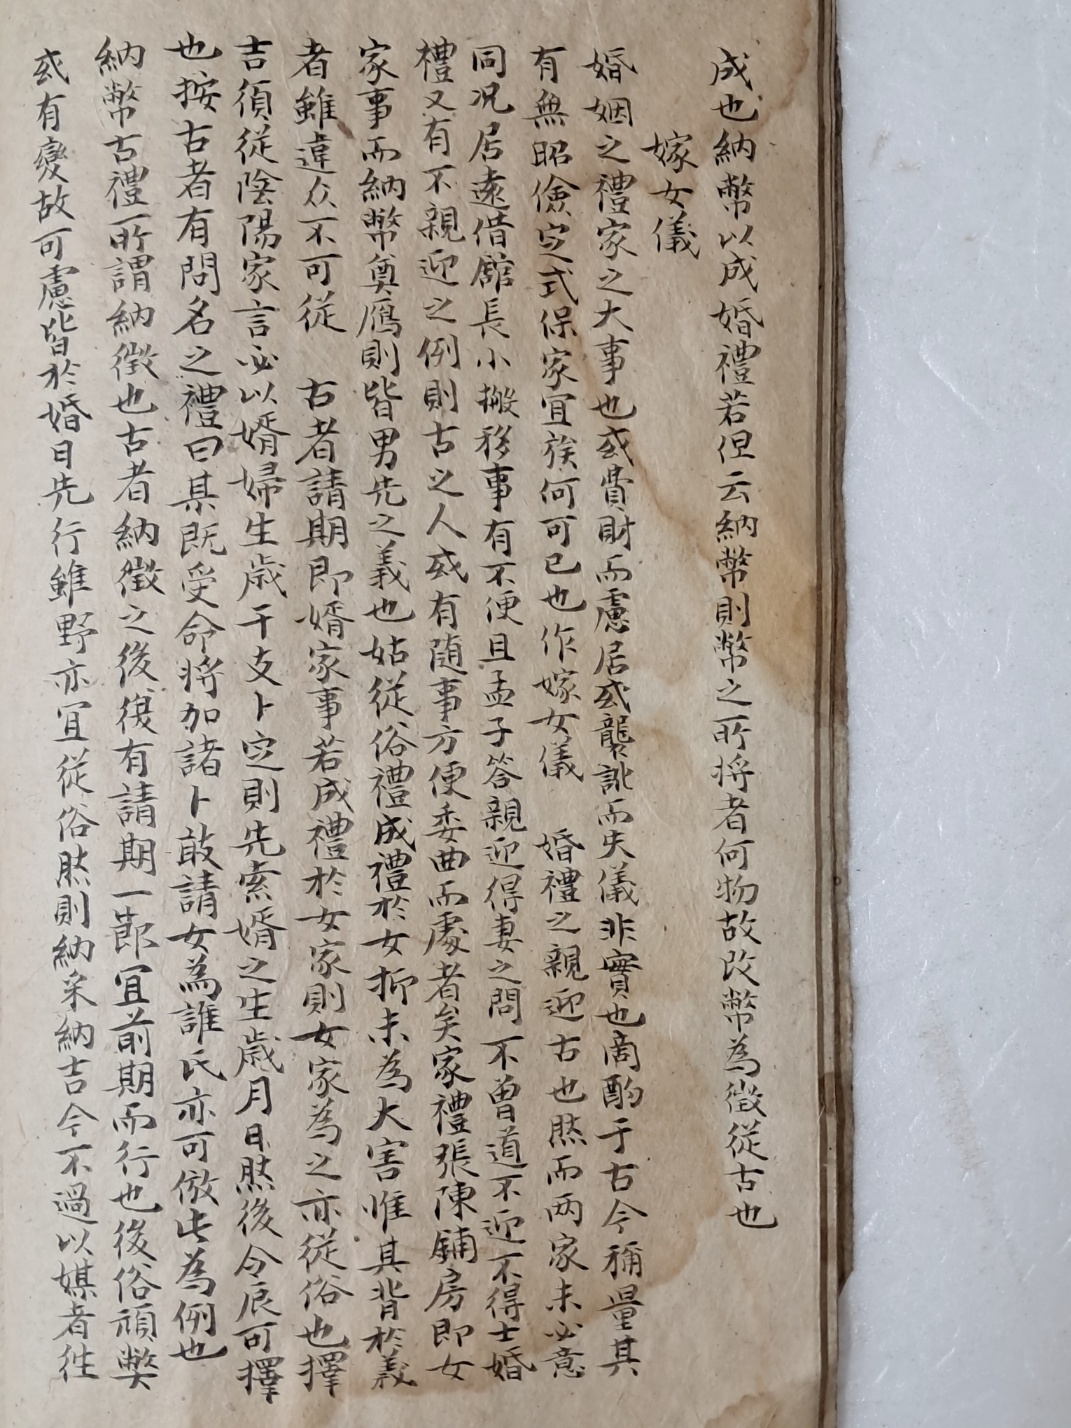 成也納幣以成婚禮若但云納幣則幣之所將者何物故改幣為徵從古也
嫁女儀
婚姻之禮家之大事也或貲財而慮居或襲訛而失儀非實也商酌于古今稱量其
有無昭儉定式保家宜族何可已也作嫁女儀 婚禮之親迎古也然而两家未必意
同况居遠借館長小搬移事有不便且孟子答親迎得妻之問不曽道不迎不得士婚
禮又有不親迎之例則古之人或有随事方便委曲而處者矣家禮張陳鋪房即女
家事而納幣奠鴈則皆男先之義也姑從俗禮成禮於女抑未為大害惟其背於義
者雖違众不可從 古者請期即婿家事若成禮於女家則女家為之亦從俗也擇
吉須從陰陽家言必以婿婦生歲干支卜定則先索婿之生歲月日然後令辰可擇
也按古者有問名之禮曰某既受命將加諸卜敢請女為誰氏亦可倣此為例也
納幣古禮所謂納徵也古者納徵之後復有請期一節宜前期而行也後俗頑弊
或有變故可慮皆於婚日先行雖野亦宜從俗然則納采納吉今不過以媒者往